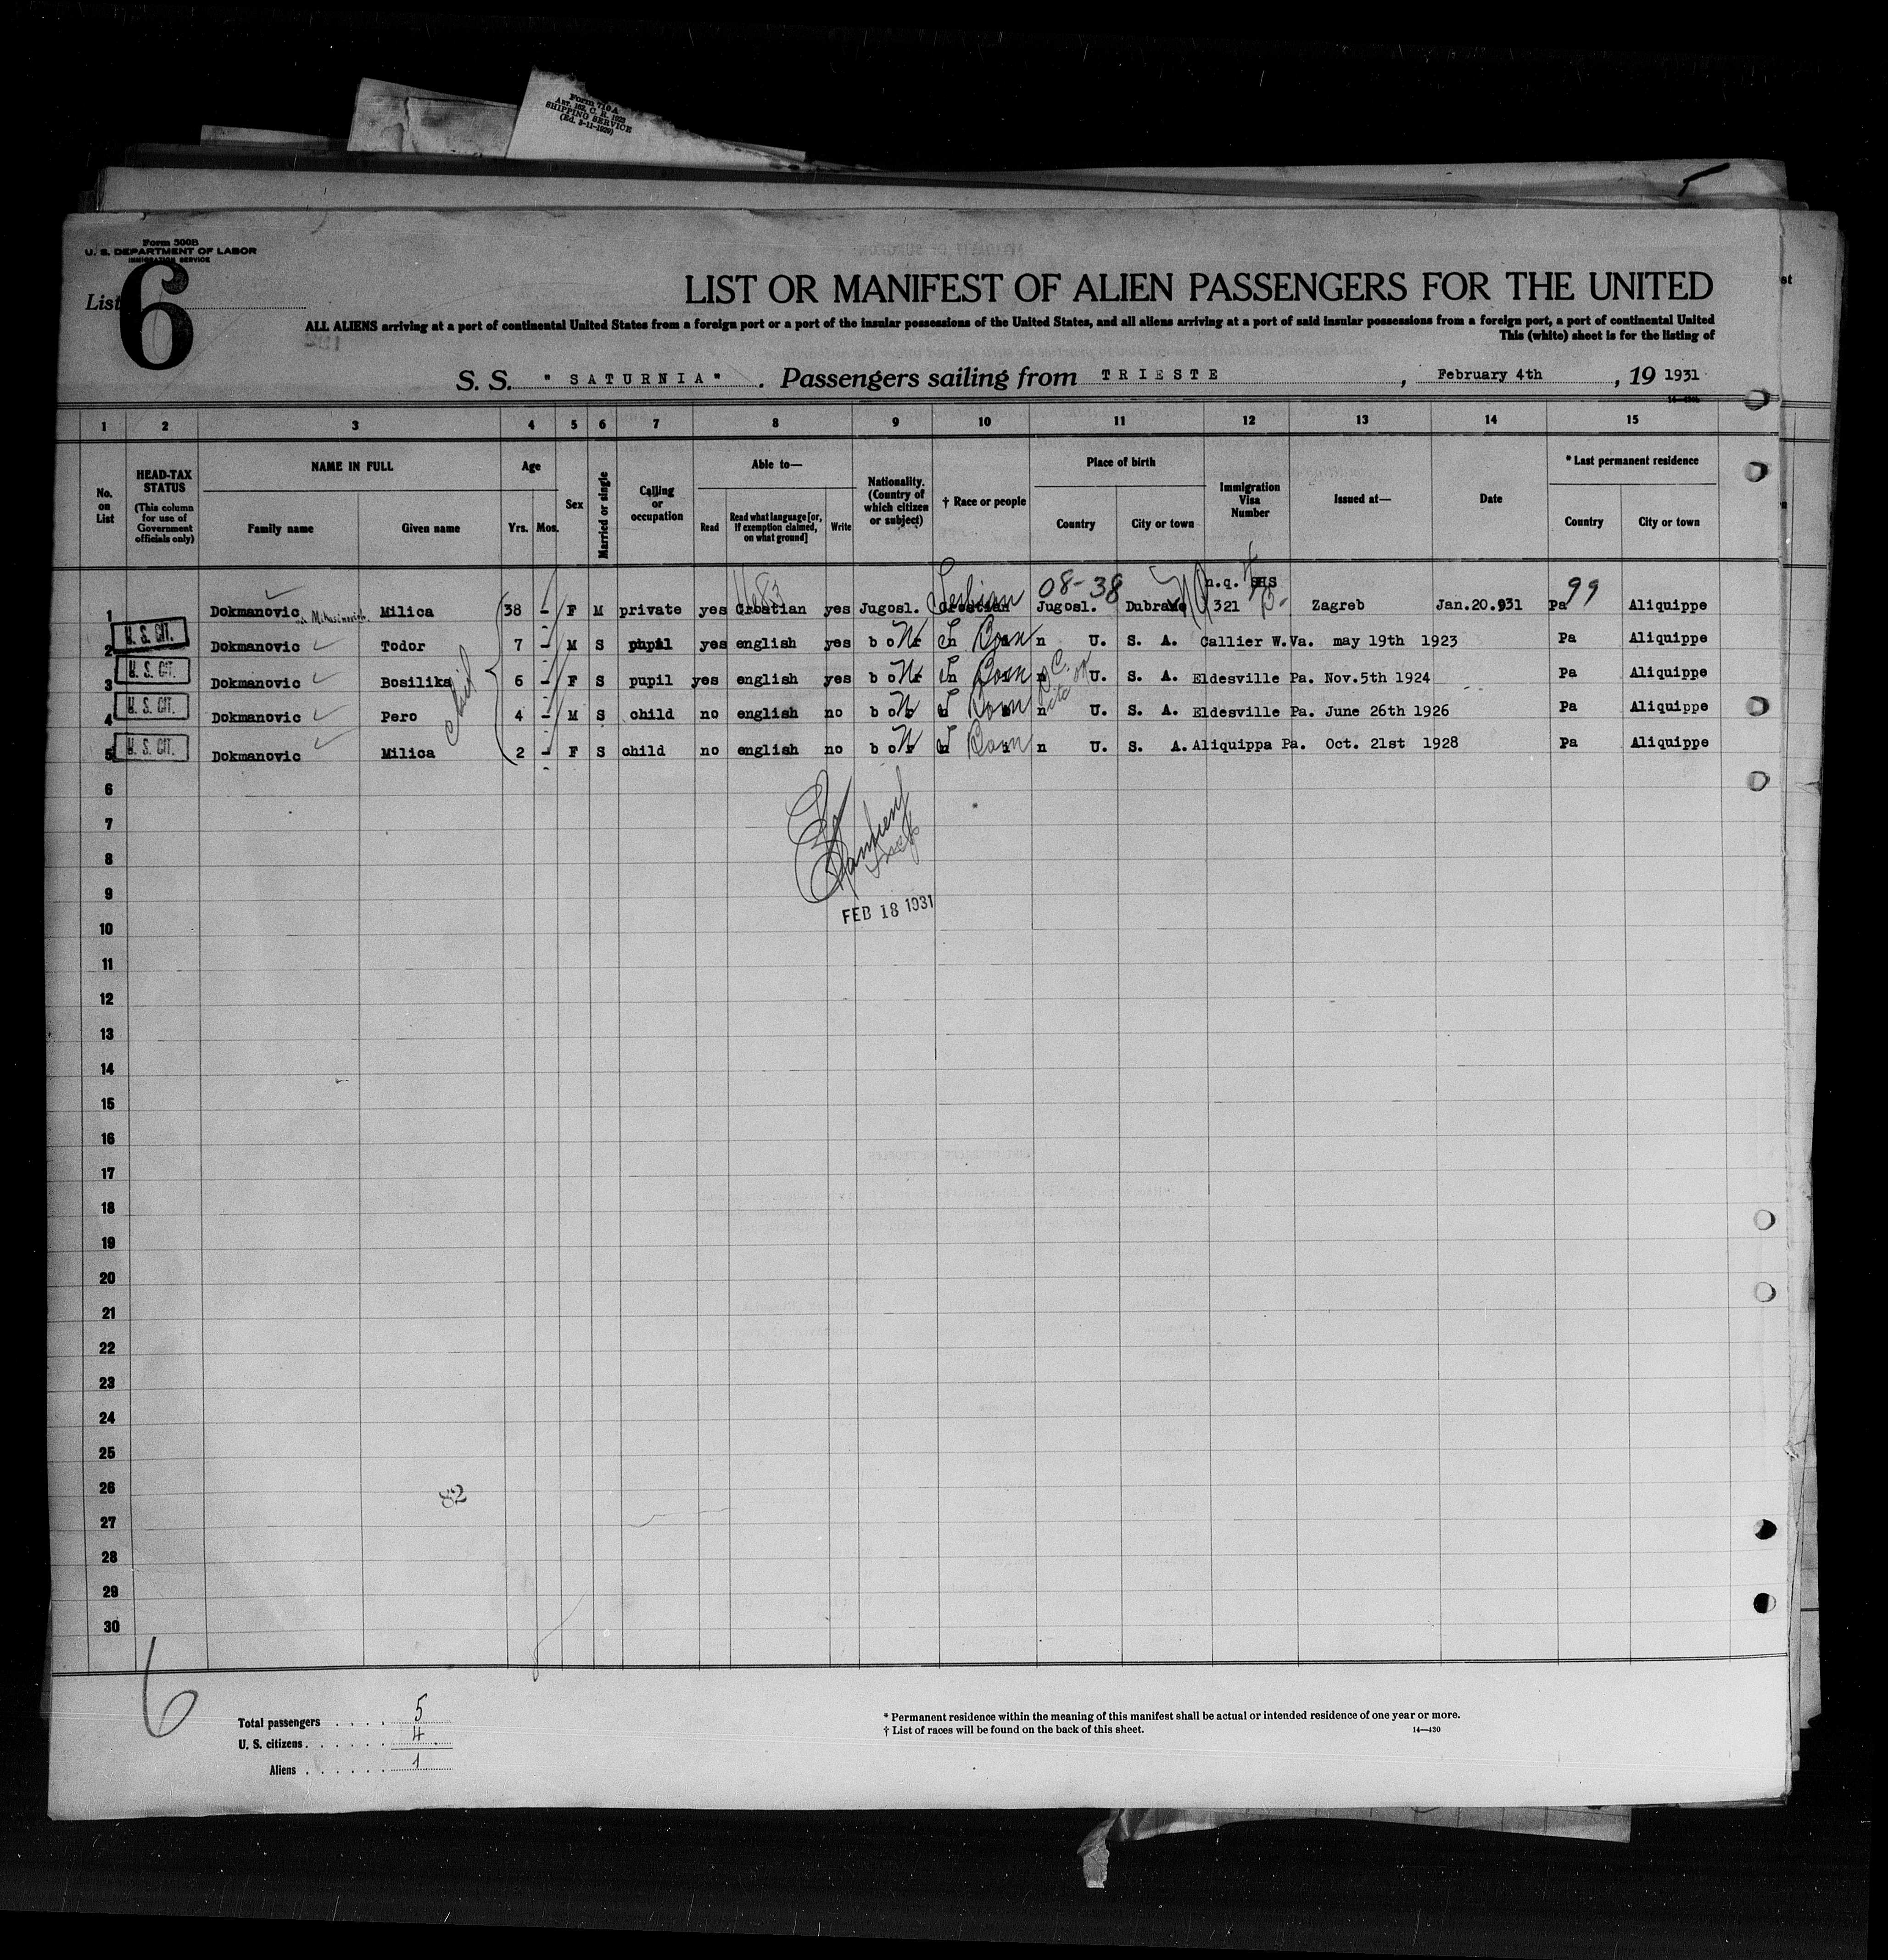 Form 710A
ART. 162, C. R. 1923
SHIPPING SERVICE
(Ed. 9-11-1929)
Form 500B
U. S. DEPARTMENT OF LABOR
IMMIGRATION SERVICE
List 6
LIST OR MANIFEST OF ALIEN PASSENGERS FOR THE UNITED
ALL ALIENS arriving at a port of continental United States from a foreign port or a port of the insular possessions of the United States, and all aliens arriving at a port of said insular possessions from a foreign port, a port of continental United
This (white) sheet is for the listing of
S. S. "SATURNIA". Passengers sailing from TRIESTE, February 4th, 19 1931
1 2 3 4 5 6 7 8 9 10 11 12 13 14 15
No. on List
HEAD-TAX STATUS (This column for use of Government officials only)
NAME IN FULL
Family name Given name
Age
Yrs. Mos.
Sex
Married or single
Calling or occupation
Able to—
Read Read what language [or, if exemption claimed, on what ground] Write
Nationality. (Country of which citizen or subject)
† Race or people
Place of birth
Country City or town
Immigration Visa Number
Issued at—
Date
* Last permanent residence
Country City or town
08-38 n.q. 99
1 Dokmanovic Milica 38 - F M private yes Croatian yes Jugosl. Croatian Jugosl. 321 Zagreb Jan.20.931 Pa Aliquippe
2 U. S. CIT. Dokmanovic Todor 7 - M S pupil yes english yes U. S. A. Callier W.Va. may 19th 1923 Pa Aliquippe
3 U. S. CIT. Dokmanovic Bosilika 6 - F S pupil yes english yes U. S. A. Eldesville Pa. Nov.5th 1924 Pa Aliquippe
4 U. S. CIT. Dokmanovic Pero 4 - M S child no english no U. S. A. Eldesville Pa. June 26th 1926 Pa Aliquippe
5 U. S. CIT. Dokmanovic Milica 2 - F S child no english no U. S. A. Aliquippa Pa. Oct. 21st 1928 Pa Aliquippe
6
7
8
9
FEB 18 1931
10
11
12
13
14
15
16
17
18
19
20
21
22
23
24
25
26
82
27
28
29
30
6
Total passengers . . . . 5
U. S. citizens . . . . . . 4
Aliens . . . . . . 1
* Permanent residence within the meaning of this manifest shall be actual or intended residence of one year or more.
† List of races will be found on the back of this sheet. 14—420